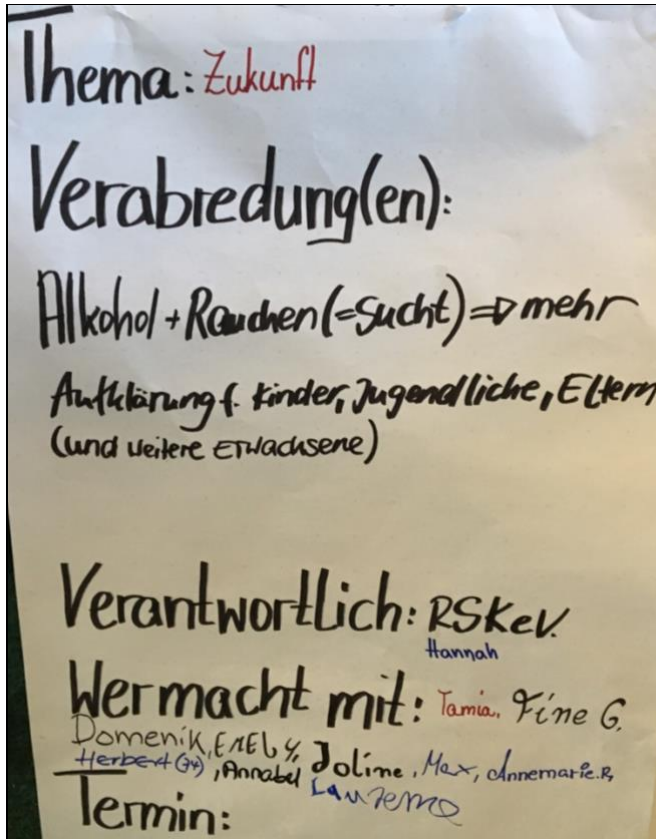 Thema: Zukunft
Verabredung(en):
Alkohol + Rauchen (=Sucht) => mehr
Aufklärung f. Kinder, Jugendliche, Eltern
(und weitere Erwachsene)
Verantwortlich: RSKeV.
Hannah
Wer macht mit: Tamia, Fine G.
Domenik, Emely,
Herbert (74), Annabel, Joline, Max, Annemarie.R,
Termin: